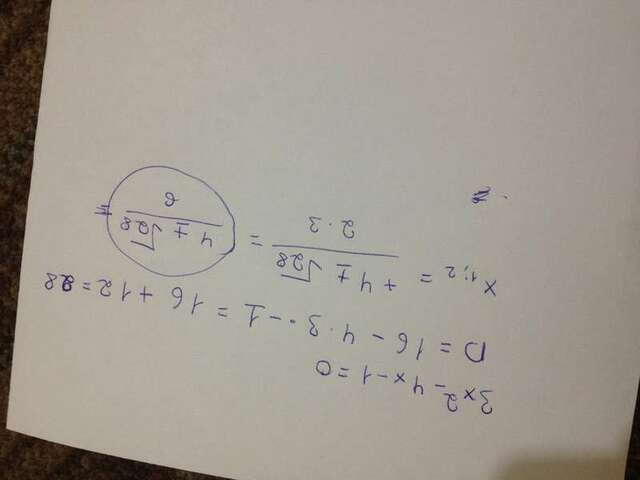 3x² - 4x - 1 = 0
D = 16 - 4 · 3 · -1 = 16 + 12 = 28
x₁;₂ = (+4 ± √28) / (2 · 3) = (4 ± √28) / 6 =